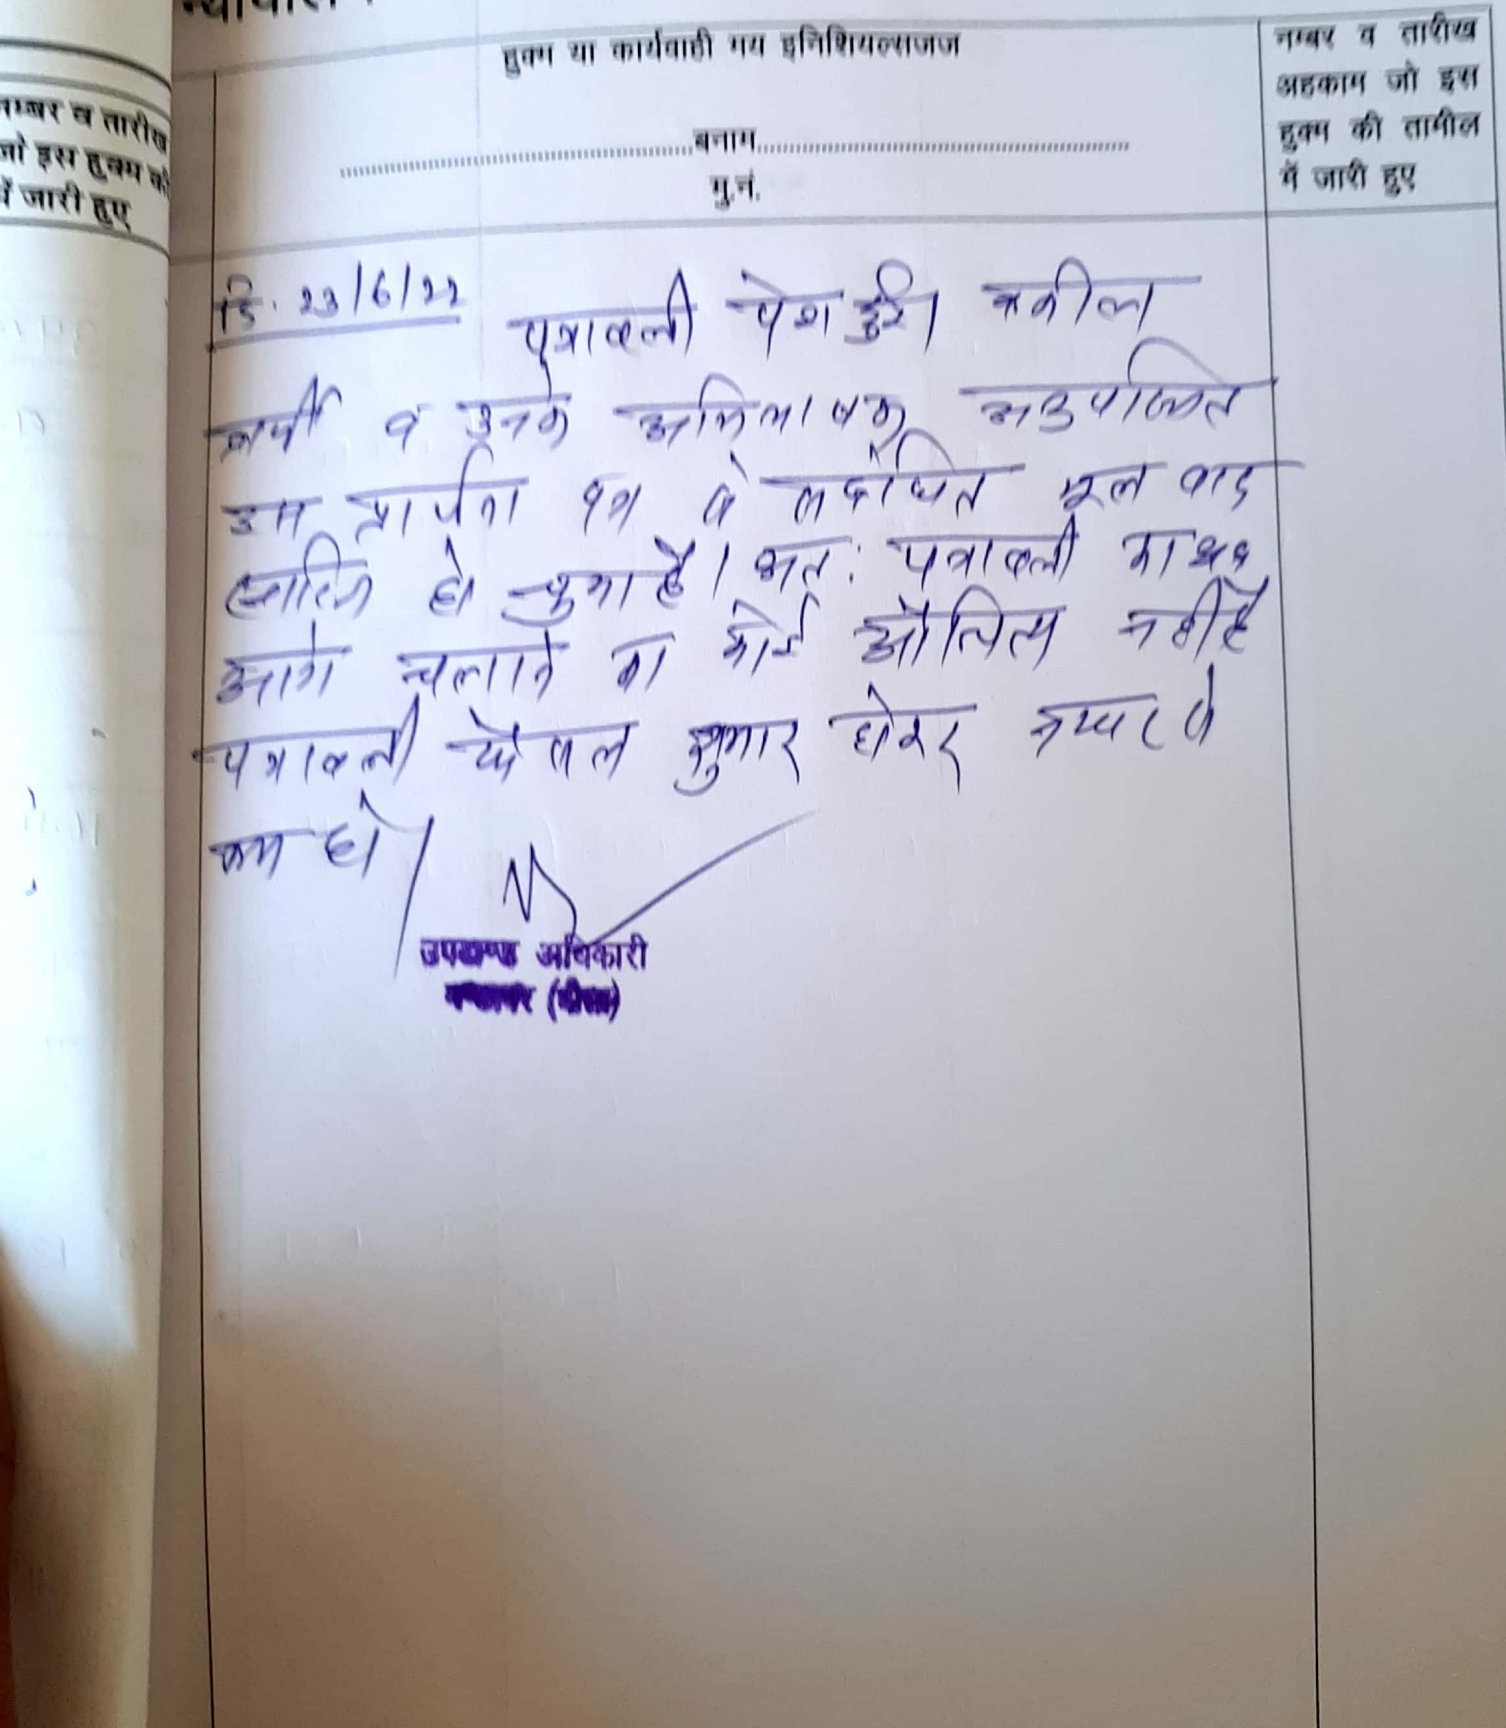 नम्बर व तारीख
जो इस हुक्म की
में जारी हुए
हुक्म या कार्यवाही मय इनिशियल्सजज
बनाम
मु.नं.
नम्बर व तारीख
अहकाम जो इस
हुक्म की तामील
में जारी हुए
दि. 23/6/22 पत्रावली पेश हुई। वकील
व उनके अभिभाषक अनुपस्थित
प्रार्थना पत्र से संबंधित मूल वाद
खारिज हो चुका है। अतः पत्रावली का अब
आगे चलाने का कोई औचित्य नहीं है
पत्रावली फैसल शुमार होकर नम्बर से
कम हो।
उपखण्ड अधिकारी